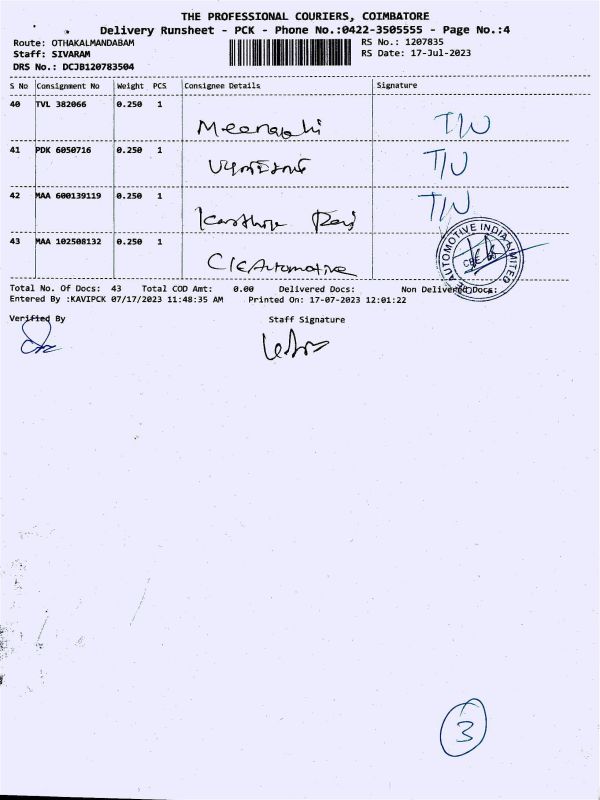 THE PROFESSIONAL COURIERS, COIMBATORE
Delivery Runsheet - PCK - Phone No.:0422-3505555 - Page No.:4
Route: OTHAKALMANDABAM
RS No.: 1207835
Staff: SIVARAM
RS Date: 17-Jul-2023
DRS No.: DCJB120783504
S No Consignment No Weight PCS Consignee Details Signature
40 TVL 382066 0.250 1 Meenakshi T/W
41 PDK 6050716 0.250 1 T/W
42 MAA 600139119 0.250 1 Karthik Raj T/W
43 MAA 102508132 0.250 1 CIEAutomotive
AUTOMOTIVE INDIA LIMITED
CBE
Total No. Of Docs: 43 Total COD Amt: 0.00 Delivered Docs: Non Delivered Docs:
Entered By :KAVIPCK 07/17/2023 11:48:35 AM Printed On: 17-07-2023 12:01:22
Verified By Staff Signature
3